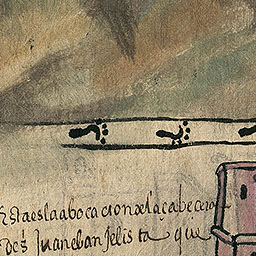 Esta es la abocacion de la cabecera
de S Juan eban jelista que